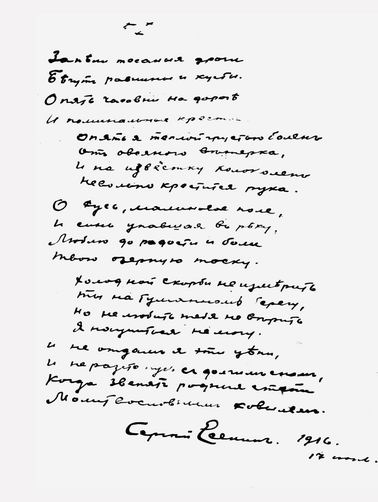 Запѣли тесаныя дроги
Бѣгутъ равнины и кусты.
Опять часовни на дорогѣ
И поминальные кресты
Опять я теплой грустью боленъ
Отъ овсяного вѣтерка,
И на извёстку колоколенъ
Невольно крестится рука.
О Русь, малиновое поле,
И синь упавшая въ рѣку,
Люблю до радости и боли
Твою озерную тоску.
Холодной скорби не измѣрить
Ты на туманномъ берегу,
Но не любить тебя не вѣрить
Я научиться не могу.
И не отдамъ я эти цѣпи,
И не разстанусь съ долгимъ сномъ,
Когда звенятъ родныя степи
Молитвословнымъ ковылемъ.
Сергѣй Есенинъ. 1916.
17 июл.